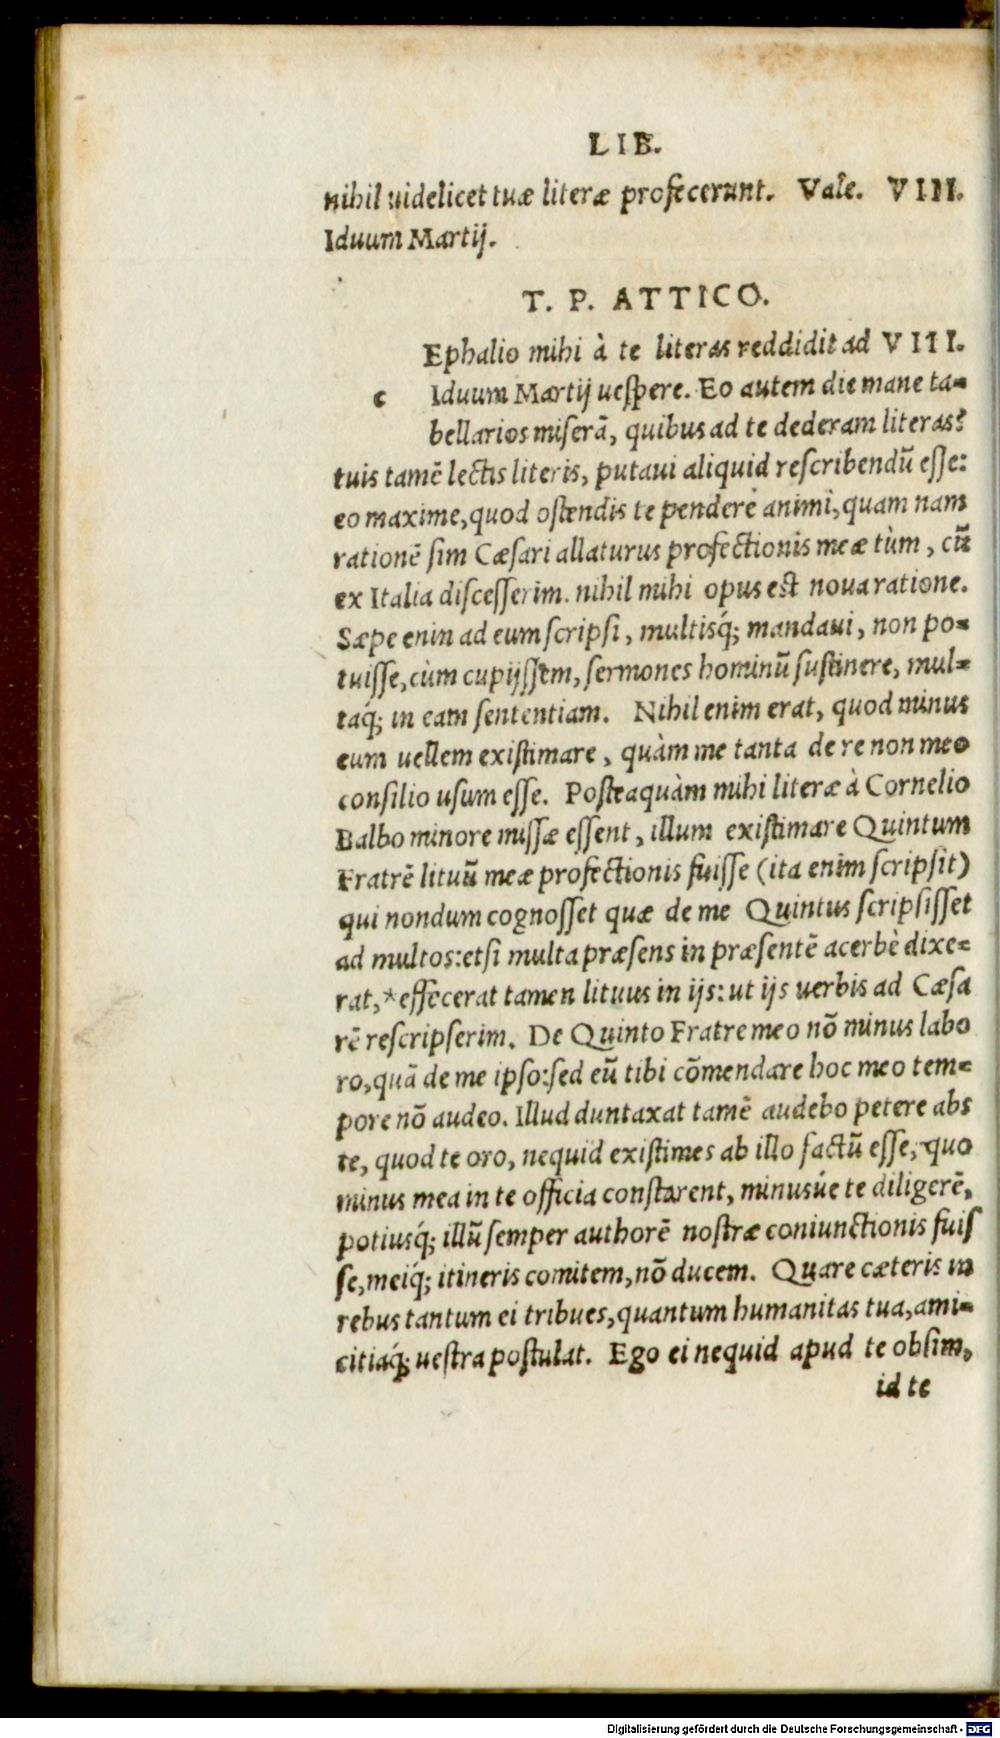 LIB.
nihil uidelicet tuæ literæ profecerunt. Vale. VIII.
Iduum Martij.
T. P. ATTICO.
Ephalio mihi à te literas reddidit ad VIII.
c Iduum Martij uespere. Eo autem die mane ta-
bellarios miserā, quibus ad te dederam literas:
tuis tamē lectis literis, putaui aliquid rescribendū esse:
eo maxime, quod ostendis te pendere animi, quam nam
rationē sim Cæsari allaturus profectionis meæ tùm, cū
ex Italia discesserim. nihil mihi opus est noua ratione.
Sæpe enin ad eum scripsi, multisq́; mandaui, non po-
tuisse, cùm cupijssem, sermones hominū sustinere, mul-
taq́; in eam sententiam. Nihil enim erat, quod minus
eum uellem existimare, quàm me tanta de re non meo
consilio usum esse. Posteaquàm mihi literæ à Cornelio
Balbo minore missæ essent, illum existimare Quintum
Fratrē lituū meæ profectionis fuisse (ita enim scripsit)
qui nondum cognosset quæ de me Quintus scripsisset
ad multos: etsi multa præsens in præsentē acerbè dixe-
rat, *effecerat tamen lituus in ijs: ut ijs uerbis ad Cæsa
rē rescripserim. De Quinto Fratre meo nō minus labo
ro, quā de me ipso: sed eū tibi cōmendare hoc meo tem-
pore nō audeo. Illud duntaxat tamē audebo petere abs
te, quod te oro, nequid existimes ab illo factū esse, quo
minus mea in te officia constarent, minusúe te diligerē,
potiusq́; illū semper authorē nostræ coniunctionis fuis
se, meiq́; itineris comitem, nō ducem. Quare cæteris in
rebus tantum ei tribues, quantum humanitas tua, ami-
citiaq́; uestra postulat. Ego ei nequid apud te obsim,
id te
Digitalisierung gefördert durch die Deutsche Forschungsgemeinschaft - DFG